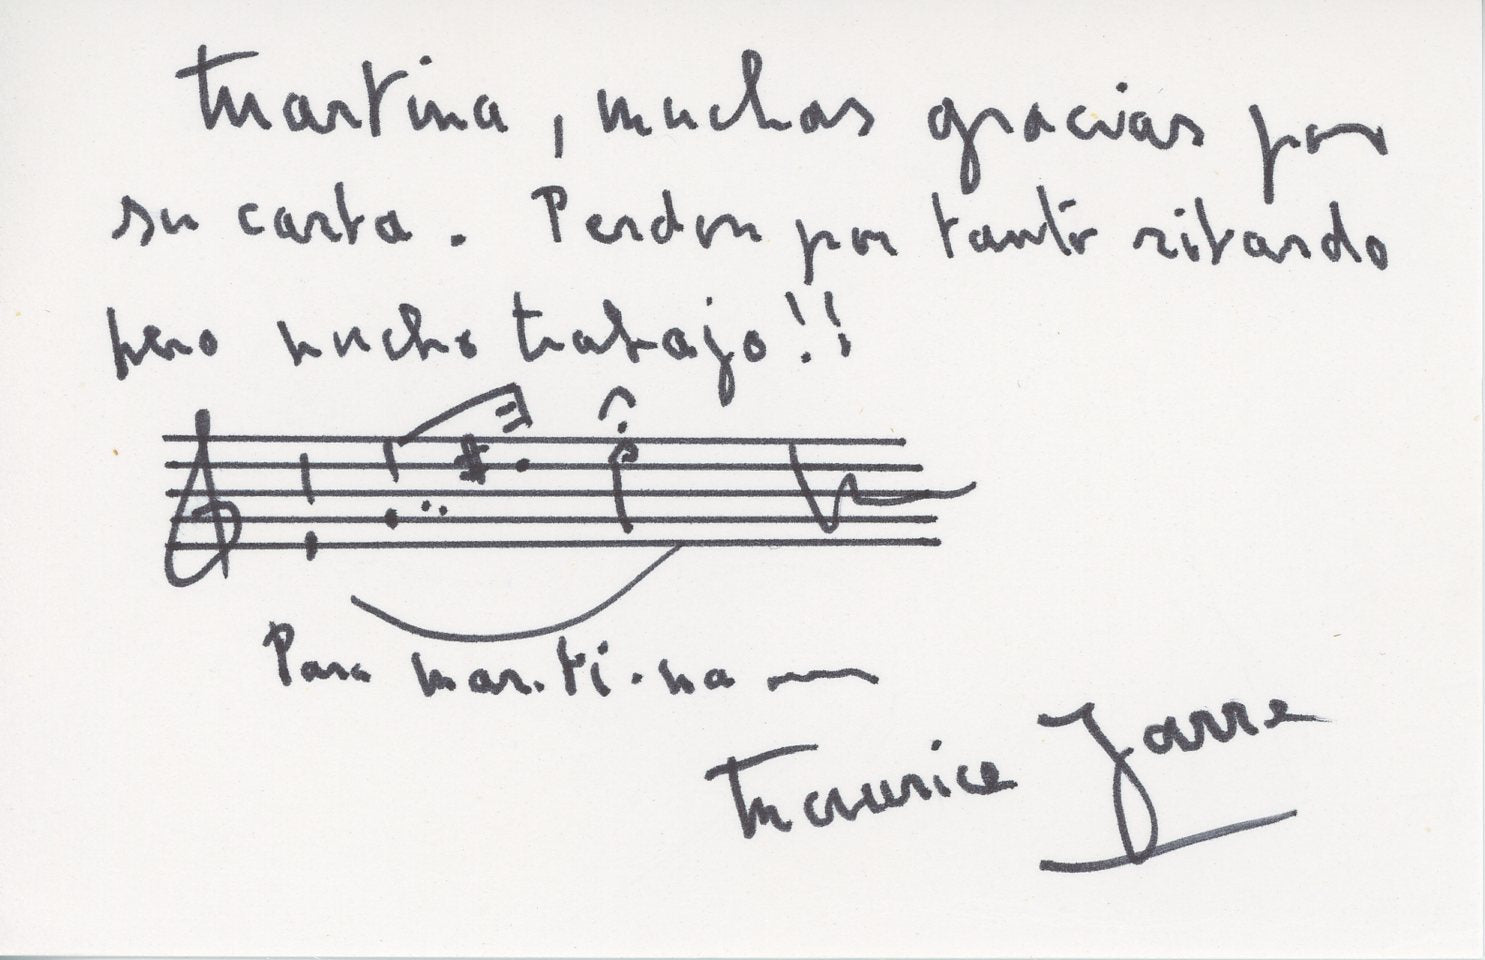 Martina, muchas gracias por
su carta. Perdon por tanto ritardo
pero mucho trabajo!!
Para mar.ti.na
Maurice Jarre